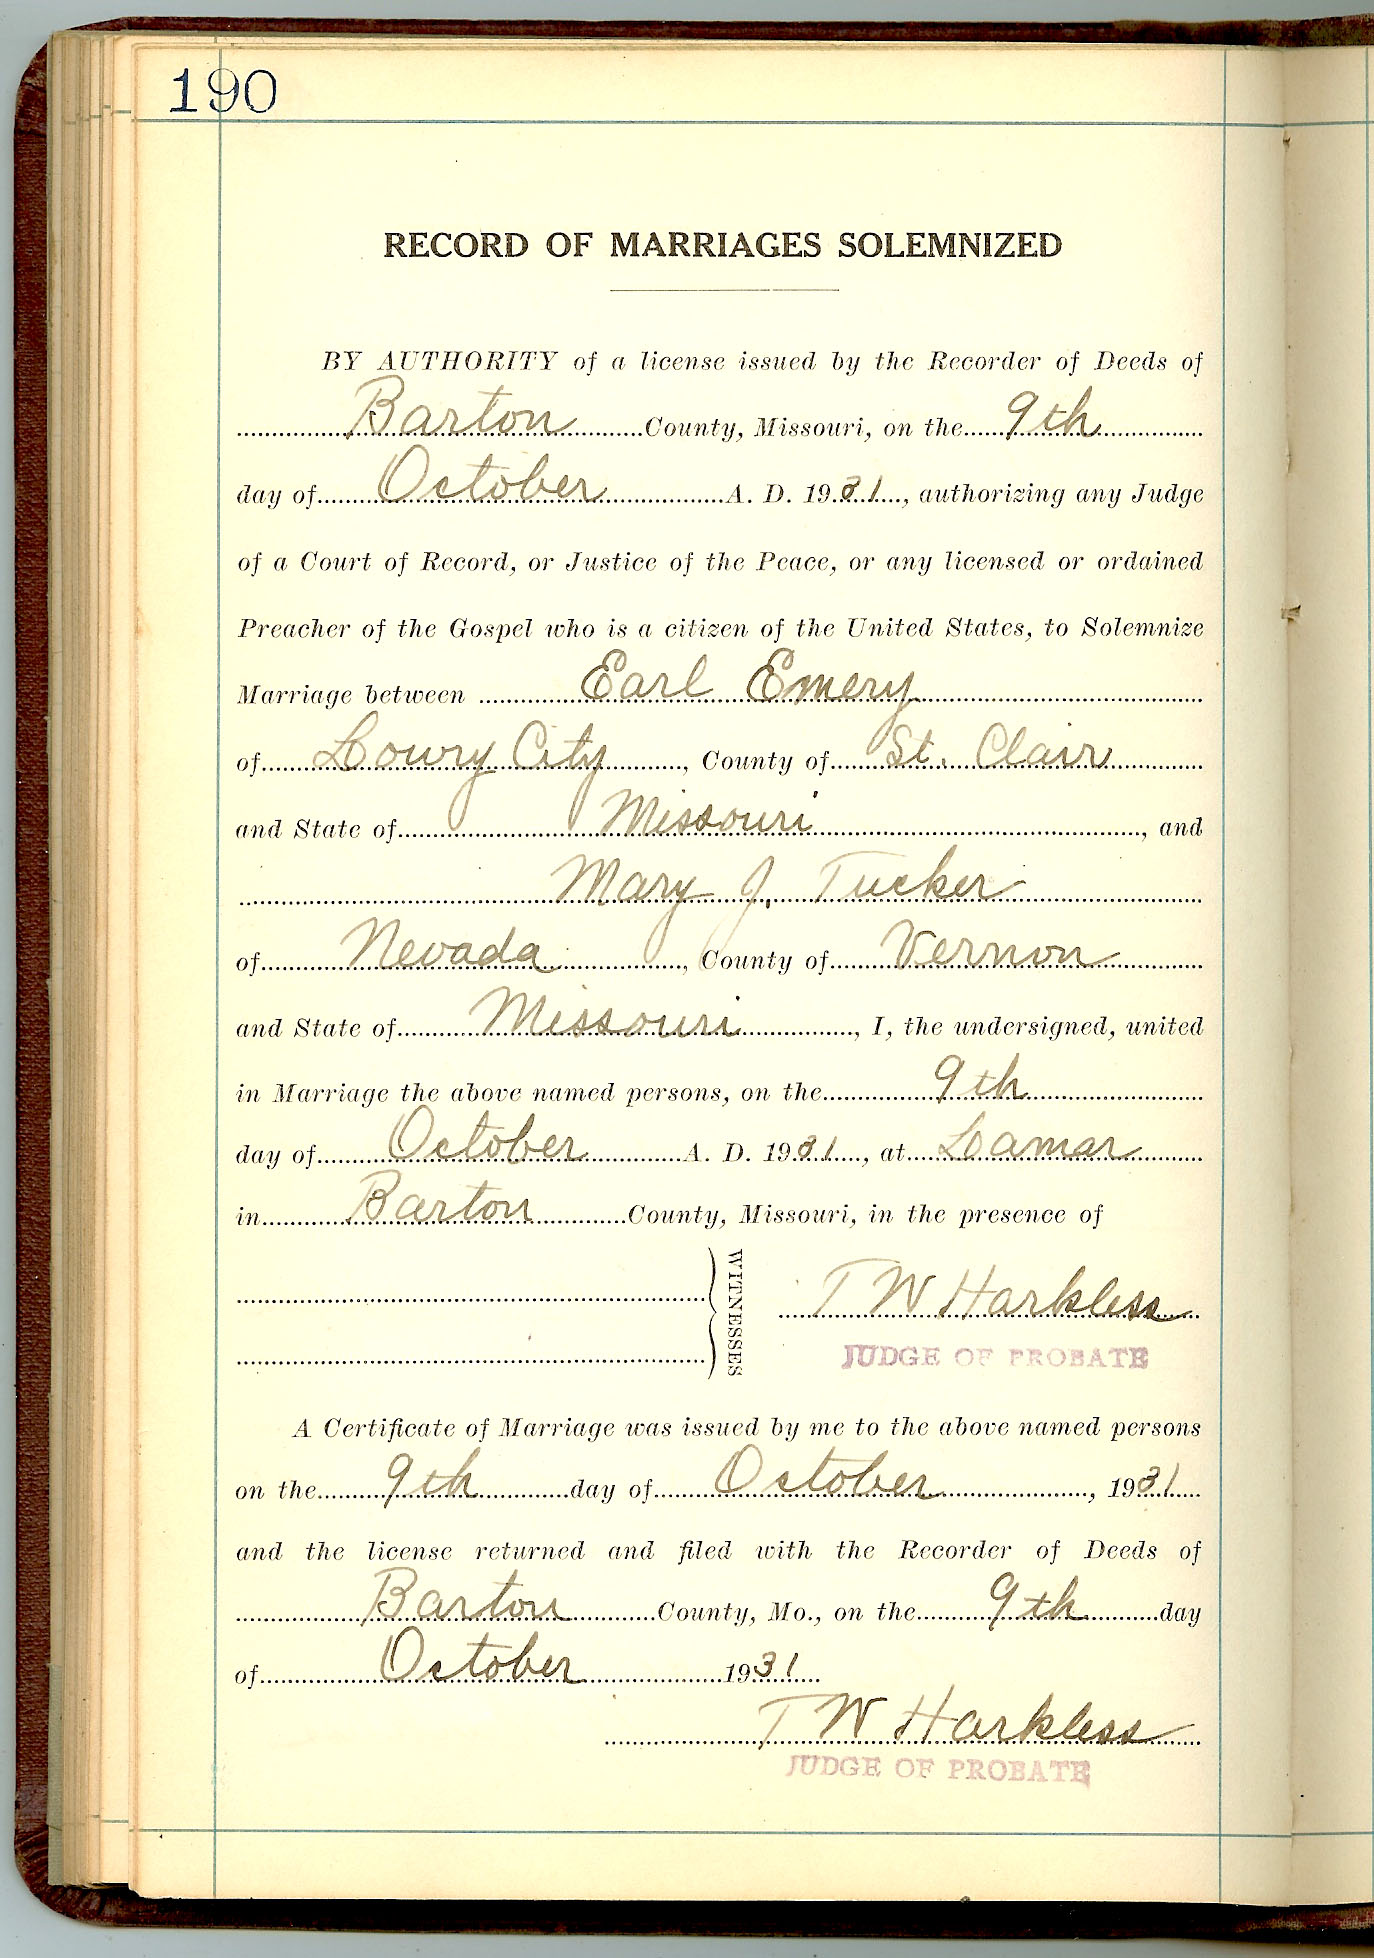 190
RECORD OF MARRIAGES SOLEMNIZED
BY AUTHORITY of a license issued by the Recorder of Deeds of
Barton County, Missouri, on the 9th
day of October A. D. 1931, authorizing any Judge
of a Court of Record, or Justice of the Peace, or any licensed or ordained
Preacher of the Gospel who is a citizen of the United States, to Solemnize
Marriage between Earl Emery
of Lowry City, County of St. Clair
and State of Missouri, and
Mary J. Tucker
of Nevada, County of Vernon
and State of Missouri, I, the undersigned, united
in Marriage the above named persons, on the 9th
day of October A. D. 1931, at Lamar
in Barton County, Missouri, in the presence of
WITNESSES
T W Harkless
JUDGE OF PROBATE
A Certificate of Marriage was issued by me to the above named persons
on the 9th day of October, 1931
and the license returned and filed with the Recorder of Deeds of
Barton County, Mo., on the 9th day
of October 1931
T W Harkless
JUDGE OF PROBATE